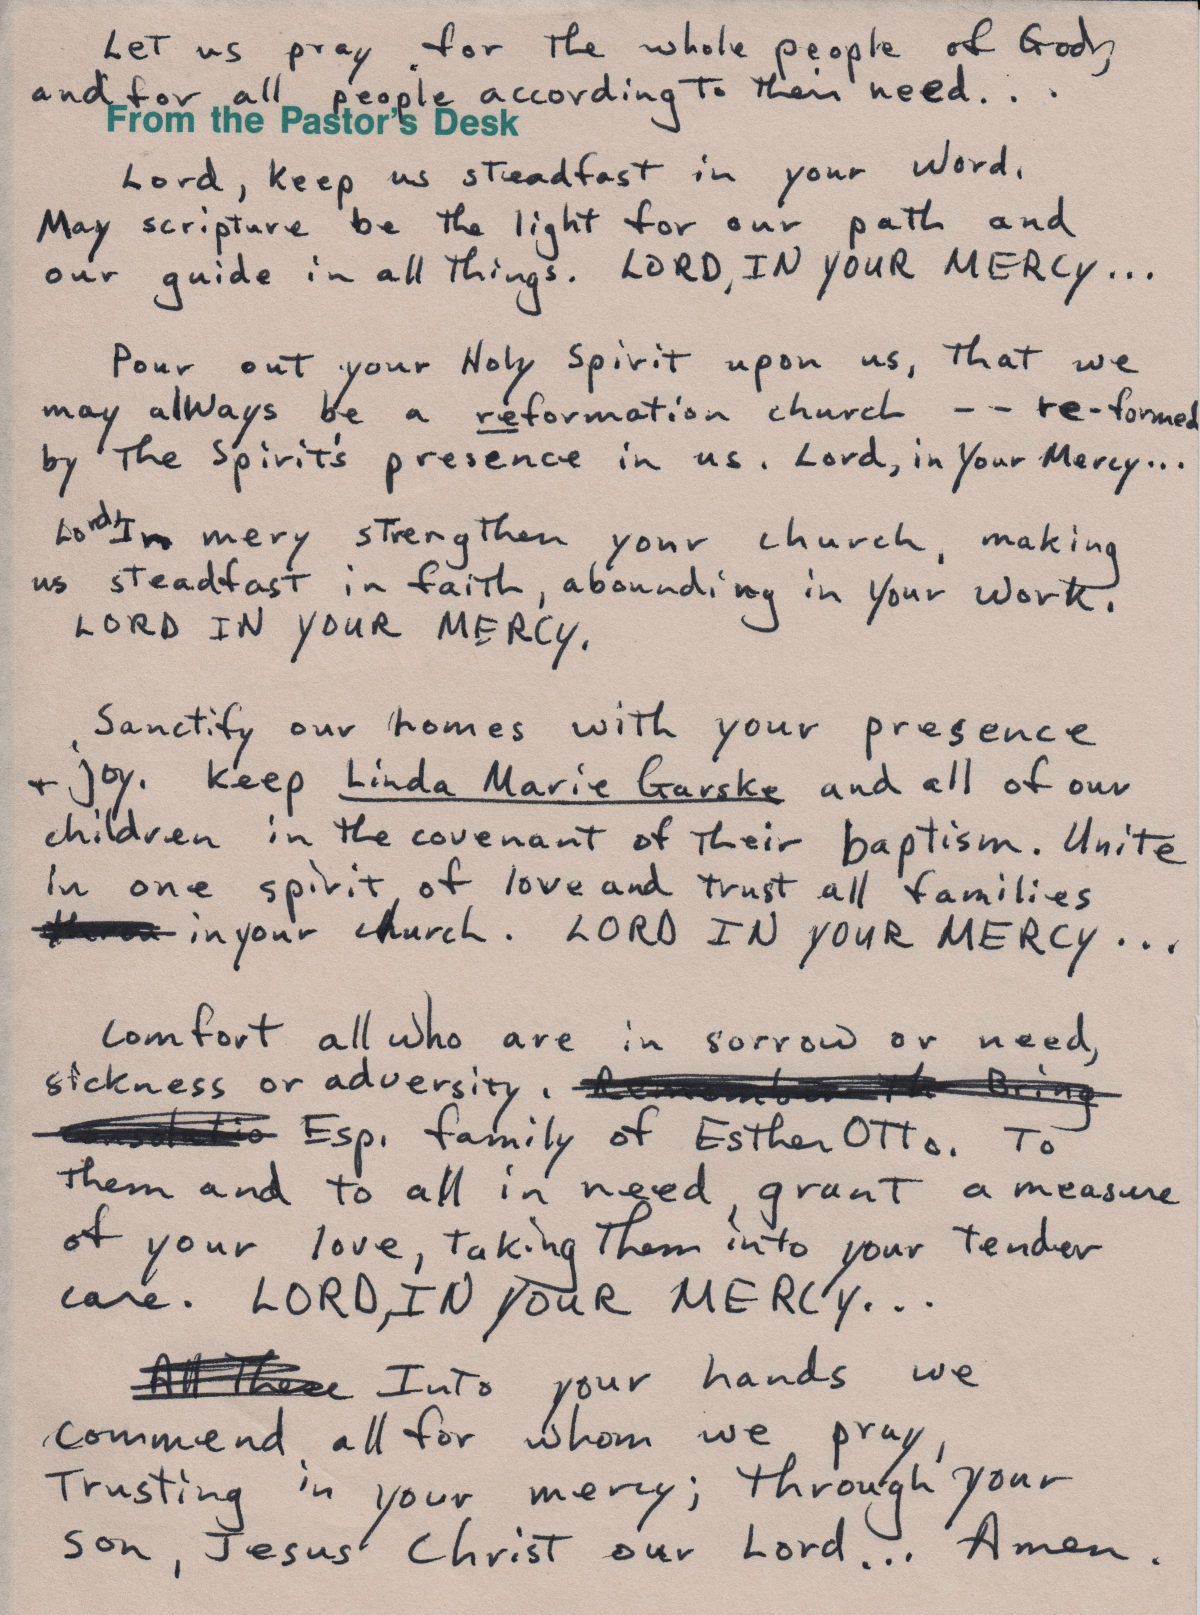 Let us pray for the whole people of God,
and for all people according to their need...
From the Pastor's Desk
Lord, keep us steadfast in your Word.
May scripture be the light for our path and
our guide in all things. LORD, IN YOUR MERCY...
Pour out your Holy Spirit upon us, that we
may always be a reformation church -- re-formed
by the Spirit's presence in us. Lord, in Your Mercy...
Lord, In mery strengthen your church, making
us steadfast in faith, abounding in your work.
LORD IN YOUR MERCY.
Sanctify our homes with your presence
+ joy. Keep Linda Marie Garske and all of our
children in the covenant of their baptism. Unite
in one spirit of love and trust all families
in your church. LORD IN YOUR MERCY...
Comfort all who are in sorrow or need,
sickness or adversity. Remember th Bring
Esp. family of Esther Otto. To
them and to all in need, grant a measure
of your love, taking them into your tender
care. LORD, IN YOUR MERCY...
All these Into your hands we
commend all for whom we pray,
Trusting in your mercy; through your
son, Jesus Christ our Lord... Amen.